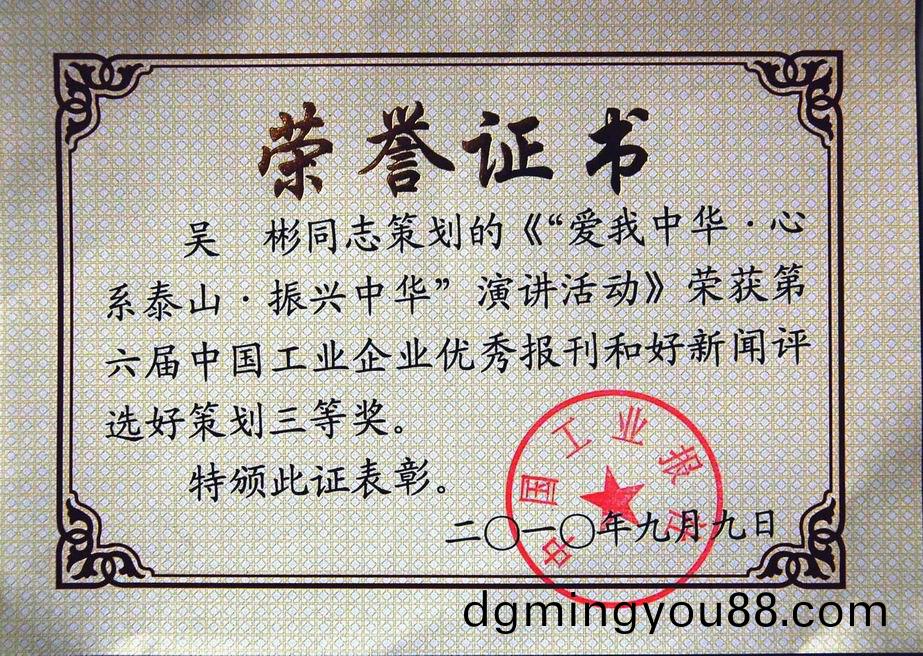 荣誉证书
吴 彬同志策划的《“爱我中华·心
系泰山·振兴中华”演讲活动》荣获第
六届中国工业企业优秀报刊和好新闻评
选好策划三等奖。
特颁此证表彰。
中国工业报社
二〇一〇年九月九日
dgmingyou88.com